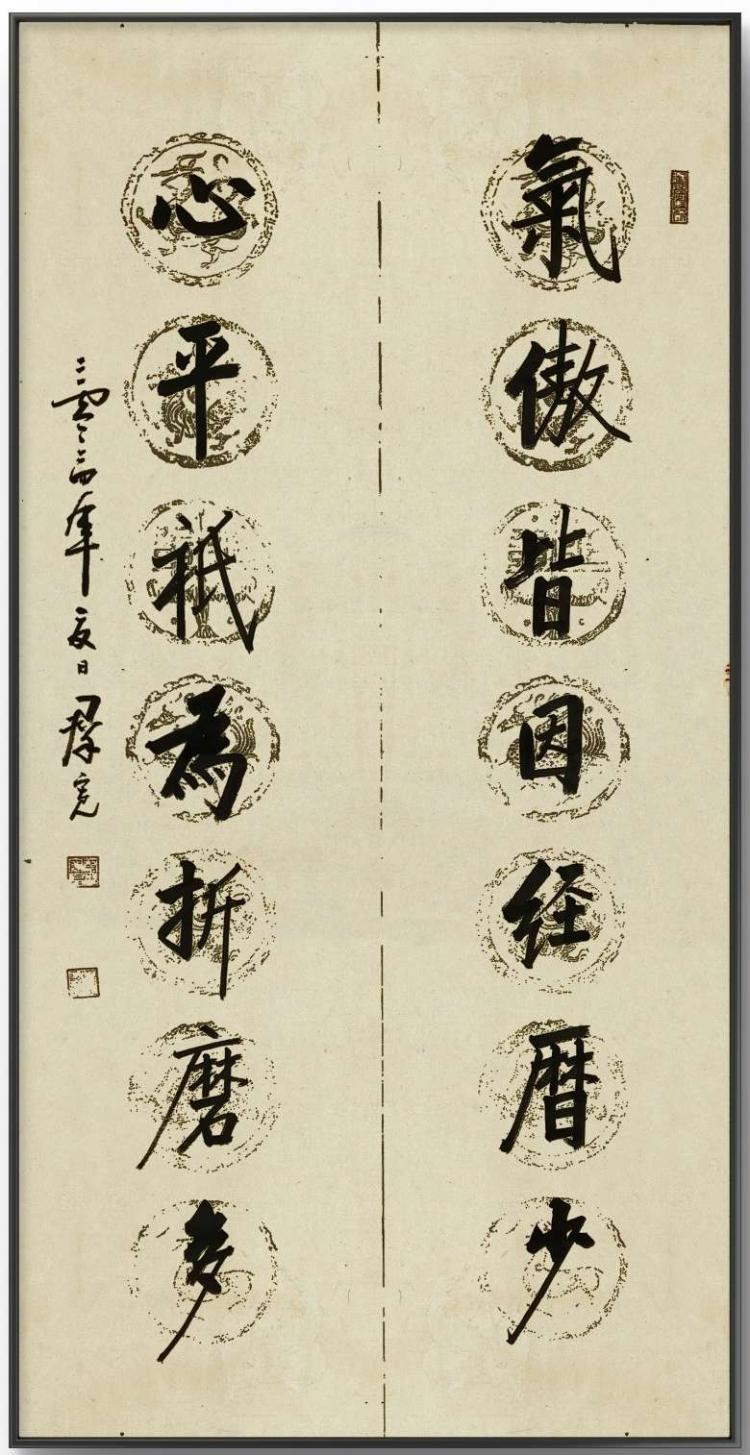 氣傲皆因经暦少
心平祇為折磨多
二零二四年夏日群寛